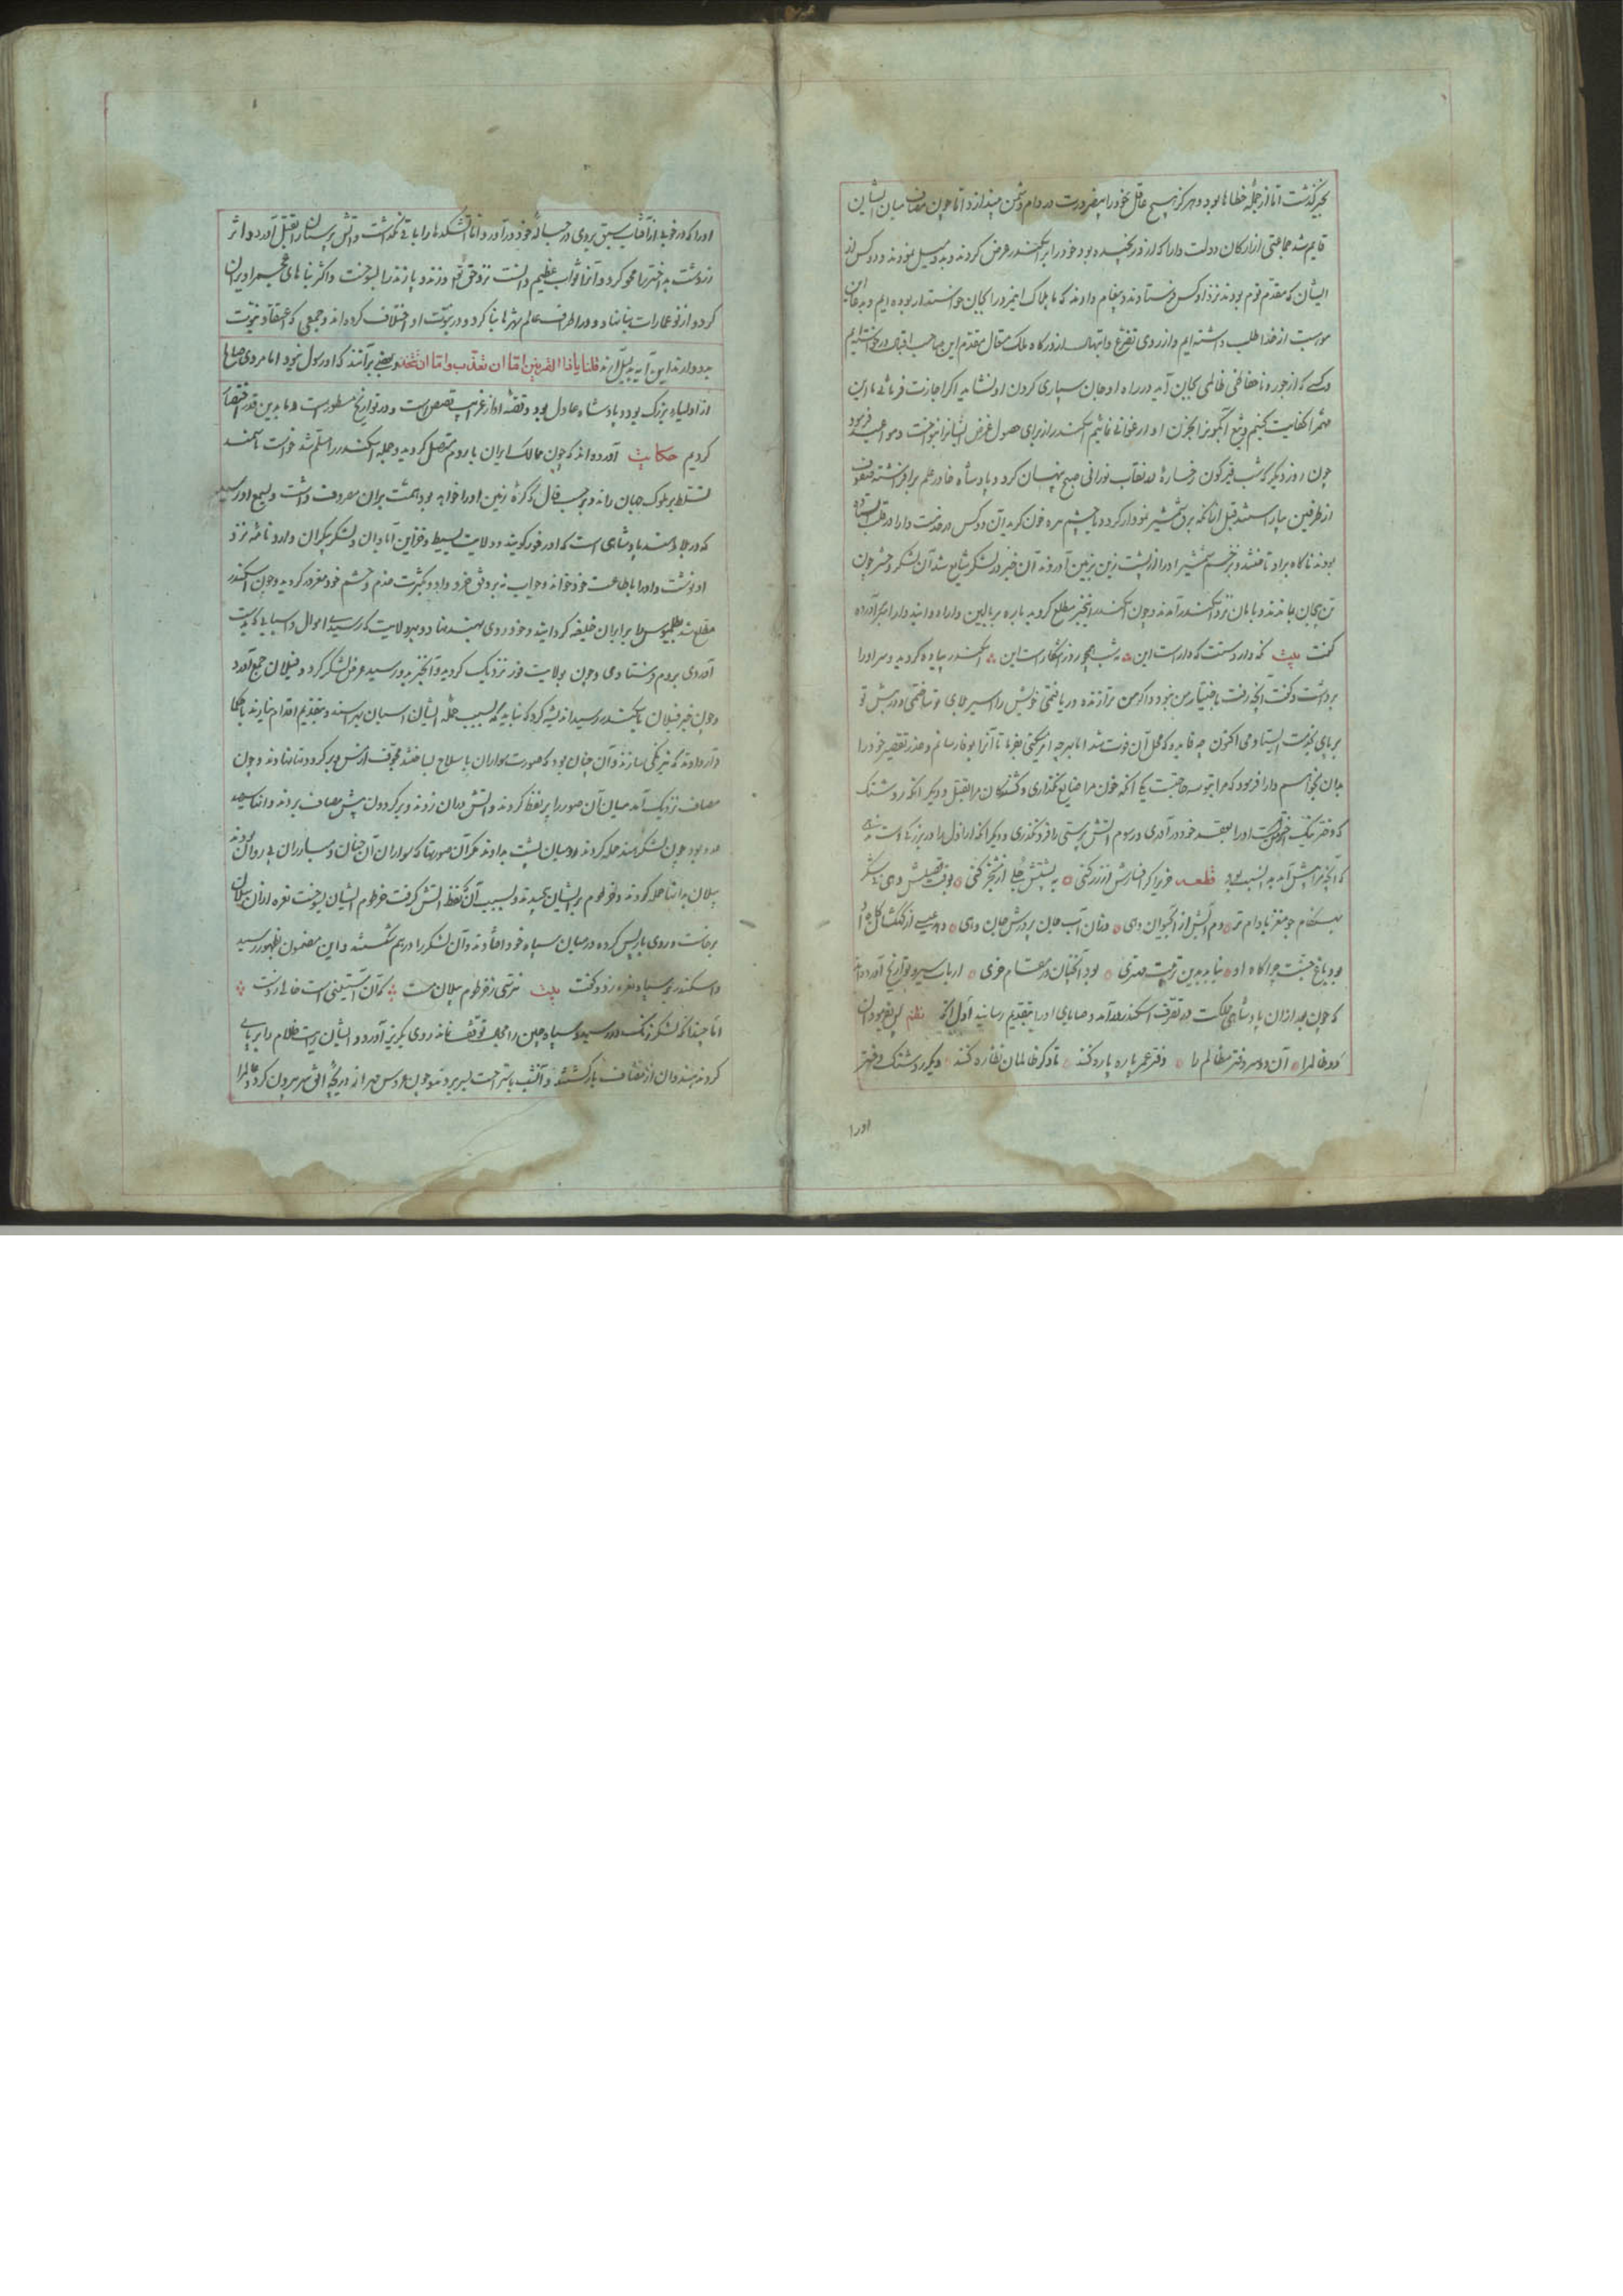 بخیر گذشت اما از جمله خطاها بود و هرگز هیچ عاقل خود را بضرورت در دام دشمن نیندازد اما چون مصاف میان ایشان
قایم شد جماعتی از ارکان دولت دارا که ازو رنجیده بود خود را بر اسکندر عرض کردند و بدو میل نمودند و دو کس از
ایشان که مقدم قوم بودند نزد او کس فرستادند و پیغام دادند که ما هلاک این مرد را بجان خواستدار بوده ایم و بدعا این
از خدا طلب داشته ایم و از روی تضرع و ابتهال از درگاه ملک متعال مقدم این صاحب اقبال درخواسته ایم
و کسی که از جور و ناحفاظی ظالمی بجان آید در راه او جان سپاری کردن او نشاید اگر اجازت فرمائی ما این
مهم را کفایت کنیم اسکندر از برای حصول غرض ایشانرا بنواخت و مواعید فرمود
چون روز دیگر که شب قیرگون رخساره در نقاب نورانی صبح پنهان کرد و پادشاه خاور علم برافراشته صفوف
از طرفین بیاراستند قبل ازانکه برق شمشیر نمودار گردد یا چشم زره خون گرید آن دو کس در خدمت دارا در قلب ایستاده
بودند ناگاه برو تاختند و بزخم شمشیر او را از پشت زین بزمین آوردند آن خبر در لشکر شایع شد آن لشکر و حشر چون
تن بیجان بماندند و بامان نزد اسکندر آمدند و چون اسکندر ازین خبر مطلع گردید باره بر بالین دارا دوانید
گفت بیت نه شب همچو روز آشکارست این اسکندر پیاده گردید و سر او را
برداشت و گفت آنچه رفت باختیار من نبود و اگر من ترا زنده دریافتمی خویش را اسیر و در پیش تو
بر پای خدمت ایستادمی اکنون چه فایده که محل آن فوت شد اما بهرچه امر کنی بفرما تا آنرا بوفا رسانم و عذر تقصیر خود را
بدان بخواهم دارا فرمود که مرا بتو سه حاجت یکی آنکه خون مرا ضایع نگذاری و کشندگان مرا بقتل و دیگر آنکه روشنک
که دختر او را بعقد خود در آوری و رسوم آتش پرستی را فرو نگذری و دیگر آنکه اراذل را بر بزرگان دست ندهی
قطعه خری را گر افسارش از زر کنی به پشتش جل از
بود باغ جنت چراگاه او نیابد بدین تربیت مهتری بود آنچنان در مقام خری ارباب سیر و تواریخ آورده اند
که چون بعد ازان پادشاهی مملکت در تصرف اسکندر درآمد وصایای او را بتقدیم رسانید اول آنکه نظم
دو ظالم را آن دو سر دفتر مظالم را دفتر عمر پاره پاره کند تا دگر ظالمان نظاره کنند دیگر روشنک دختر
او را
او را که در خوبی از آفتاب سبق بردی در حباله خود درآورد اما آتشکدها را باقی نگذاشت و آتش پرستان را بقتل آورد و اثر
زردشت بداختر را محو کرد و آنرا ثواب عظیم دانست نزد حق تعالی و زند و پازند را بسوخت و اکثر بناهای عجم را ویران
کرد و از نو عمارات بنا نهاد و در اطراف عالم شهرها بنا کرد و در نبوت او اختلاف کرده اند و جمعی که اعتقاد نبوت
بدو دارند این آیه بدلیل آرند قلنا یا ذا القرنین اما ان تعذب و اما ان تتخذ و بعضی برآنند که او رسول نبود اما مردی صالح
از اولیاء بزرگ بود و پادشاه عادل بود و قصه او از غرایب قصص است و در تواریخ مسطورست و ما بدین قدر اختصار
کردیم حکایت آورده اند که چون ممالک ایران با روم متصل گردید و جمله اسکندر را مسلم شد خواست تا سمند
تسلط بر ملوک جهان راند و بر حسب فال که کره زمین او را خواهد بود همت بران مصروف داشت و بسمع او رسید
که در بلاد هند پادشاهی است که او را فور گویند و ولایت بسیط و خزاین آبادان و لشکر بیکران دارد نامه نزد
او نوشت و او را بطاعت خود خواند و جواب نه بر وفق خرد داد و بکثرت خدم و حشم خود مغرور گردید و چون اسکندر
مطلع شد بطلمیوس را بر ایران خلیفه گردانید و خود روی بهند نهاد و بهر ولایت که رسید اموال و اسباب که بدست
آوردی بروم فرستادی و چون بولایت فور نزدیک گردید و آن خبر بدو رسید عرض لشکر کرد و فیلان جمع آورد
و چون خبر فیلان باسکندر رسید اندیشه کرد که نباید که بسبب حمله ایشان اسبان بهراسند و بتقدیم اقدام ننمایند با حکما
قرار دادند که نیرنگی سازند و آن چنان بود که صورت سواران با سلاح بساختند مجوف از مس و بر گردونها نهادند و چون
مصاف نزدیک آمد میان آن صور را پر نفط کردند و آتش دران زدند و بر گردون پیش مصاف بردند
بود چون لشکر هند حمله کردند رومیان پشت بدادند مگر آن صورتها که سواران آن چنان و مبارزان بی روان بودند
پیلان بدانها حمله کردند و خرطوم بر ایشان پیچیدند و بسبب آن نفط آتش گرفت خرطوم ایشان بسوخت نعره ازان پیلان
برخاست و روی باز پس کرده در میان سپاه خود افتادند و آن لشکر را درهم شکستند و این مضمون بظهور رسید
و اسکندر بر سپاه نعره زد و گفت بیت نترسی ز خرطوم پیلان مست که آن آستینی است خالی ز دست
اما چندانکه لشکر زنگ در رسید و سپاه چین را مجال توقف نماند روی بگریز آورد و ایشان رایت ظلام را بر پای
کردند هندوان از مصاف بازگشتند و آن شب باستراحت بسر بردند و چون عروس مهر از دریچه افق سر بیرون کرد و عالم را